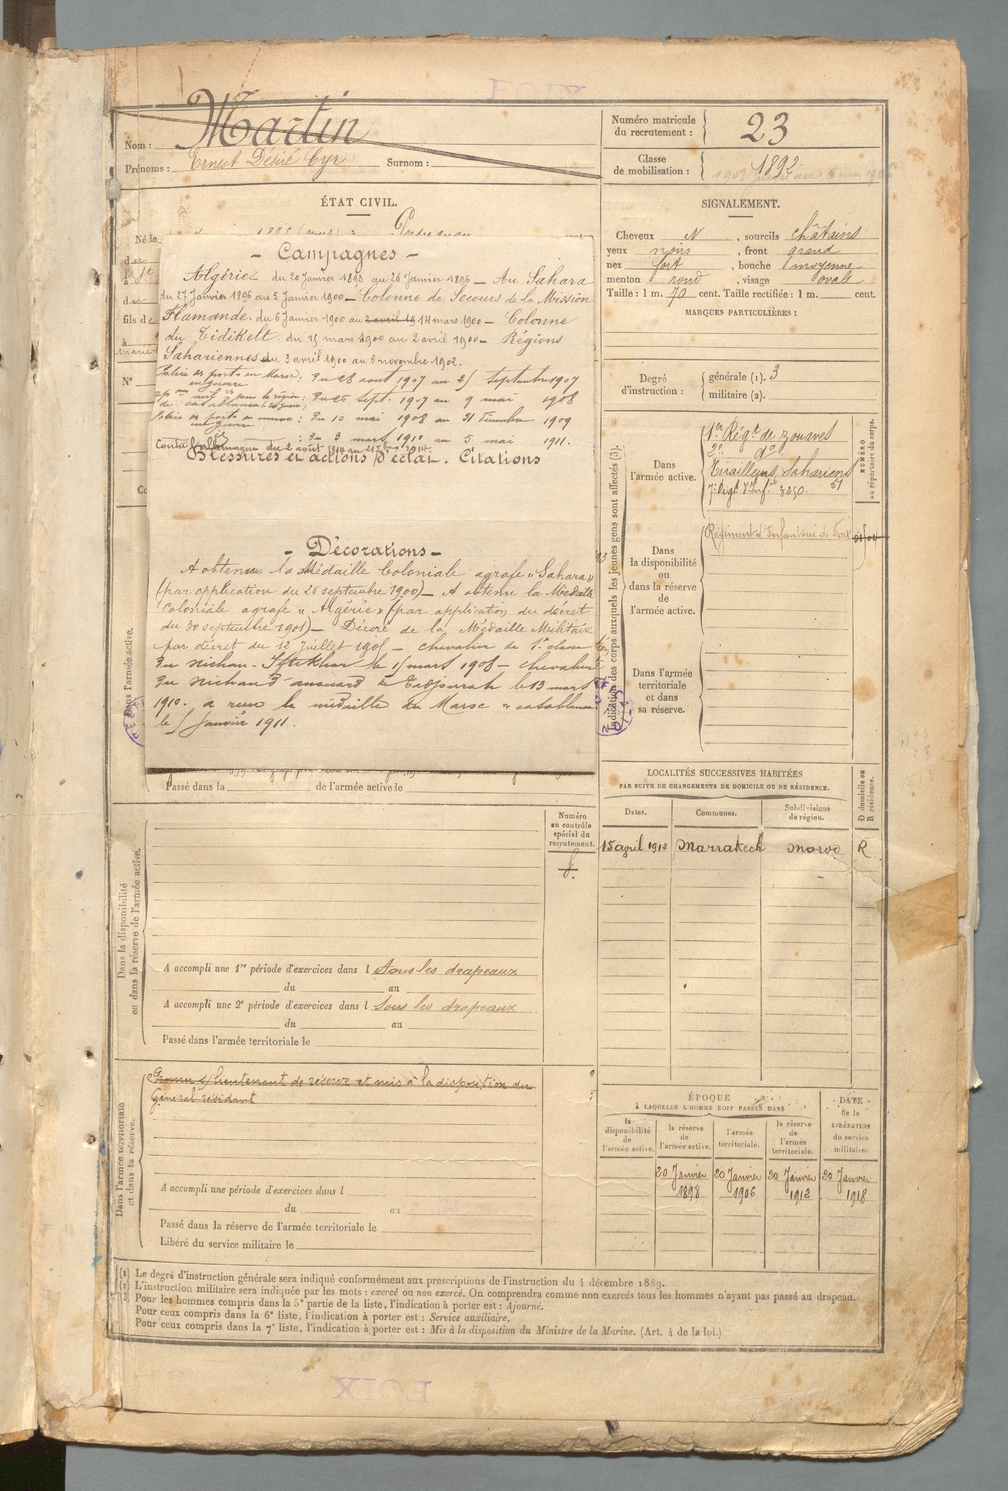 FOIX
Nom : Martin
Prénoms : Ernest Désiré Cyr Surnom :
Numéro matricule
du recrutement : 23
Classe
de mobilisation : 1892
ÉTAT CIVIL.
Né le
fils de
N°
- Campagnes -
Algérie du 20 Janvier 1893 au 26 Janvier 1896 - Au Sahara
du 27 Janvier 1896 au 5 Janvier 1900 - Colonne de Secours de la Mission
Flamande. du 6 Janvier 1900 au 2 avril 19 14 mars 1900 - Colonne
du Tidikelt du 15 mars 1900 au 2 avril 1900 - Régions
Sahariennes du 3 avril 1900 au 6 novembre 1902.
Police des ports au Maroc : Du 28 août 1907 au 25 Septembre 1907
en guerre
de Casablanca : Du 26 Sept. 1907 au 9 mai 1908
Police des ports au maroc : Du 10 mai 1908 au 31 Décembre 1909
en guerre
: Du 3 mars 1910 au 5 mai 1911.
Contre l'allemagne du 2 août 1914 au
Blessures et actions d'éclat. Citations
- Décorations -
A obtenu la Médaille Coloniale agrafe "Sahara"
(par application du 26 septembre 1900) - A obtenu la Médaille
Coloniale agrafe "Algérie" (par application du décret
du 30 septembre 1901) - Décoré de la Médaille Militaire
par décret du 12 Juillet 1905 - chevalier de 1e classe
Du Nichan-Iftikhar le 15 mars 1908 - chevalier
Du Nichan d'anouard de Tadjourah le 13 mars
1910. a reçu la médaille du Maroc "Casablanca"
le 5 janvier 1911.
Dans l'armée active.
Passé dans la de l'armée active le
SIGNALEMENT.
Cheveux N , sourcils châtains
yeux noirs , front grand
nez fort , bouche moyenne
menton rond , visage ovale
Taille : 1 m. 70 cent. Taille rectifiée : 1 m. cent.
MARQUES PARTICULIÈRES :
Degré
d'instruction : générale (1). 3
militaire (2).
Indication des corps auxquels les jeunes gens sont affectés (3).
NUMÉRO
au répertoire du corps.
Dans
l'armée active.
1er Régt de zouaves
2e do
Tirailleurs Sahariens
7e Régt d'Infie 3250. 51
Dans
la disponibilité
ou
dans la réserve
de
l'armée active.
Régiment d'Infanterie de Foix
Dans l'armée
territoriale
et dans
sa réserve.
LOCALITÉS SUCCESSIVES HABITÉES
PAR SUITE DE CHANGEMENTS DE DOMICILE OU DE RÉSIDENCE.
D domicile ou
R résidence.
Dates. Communes. Subdivisions
de région.
15 april 1912 Marrakech Maroc R
Dans la disponibilité
ou dans la réserve de l'armée active.
Numéro
au contrôle
spécial du
recrutement.
A accompli une 1re période d'exercices dans l Sous les drapeaux
du au
A accompli une 2e période d'exercices dans l Sous les drapeaux
du au
Passé dans l'armée territoriale le
Dans l'armée territoriale
et dans sa réserve.
Promu s/lieutenant de réserve et mis à la disposition du
Général résidant
A accompli une période d'exercices dans l
du au
Passé dans la réserve de l'armée territoriale le
Libéré du service militaire le
ÉPOQUE
À LAQUELLE L'HOMME DOIT PASSER DANS
DATE
de la
LIBÉRATION
du service
militaire.
la
disponibilité
de
l'armée active.
la réserve
de
l'armée active.
l'armée
territoriale.
la réserve
de
l'armée
territoriale.
20 Janvier 20 Janvier 20 Janvier 20 Janvier
1896 1906 1912 1918
(1) Le degré d'instruction générale sera indiqué conformément aux prescriptions de l'instruction du 4 décembre 1889.
(2) L'instruction militaire sera indiquée par les mots : exercé ou non exercé. On comprendra comme non exercés tous les hommes n'ayant pas passé au drapeau.
Pour les hommes compris dans la 5e partie de la liste, l'indication à porter est : Ajourné.
Pour ceux compris dans la 6e liste, l'indication à porter est : Service auxiliaire.
Pour ceux compris dans la 7e liste, l'indication à porter est : Mis à la disposition du Ministre de la Marine. (Art. 4 de la loi.)
FOIX